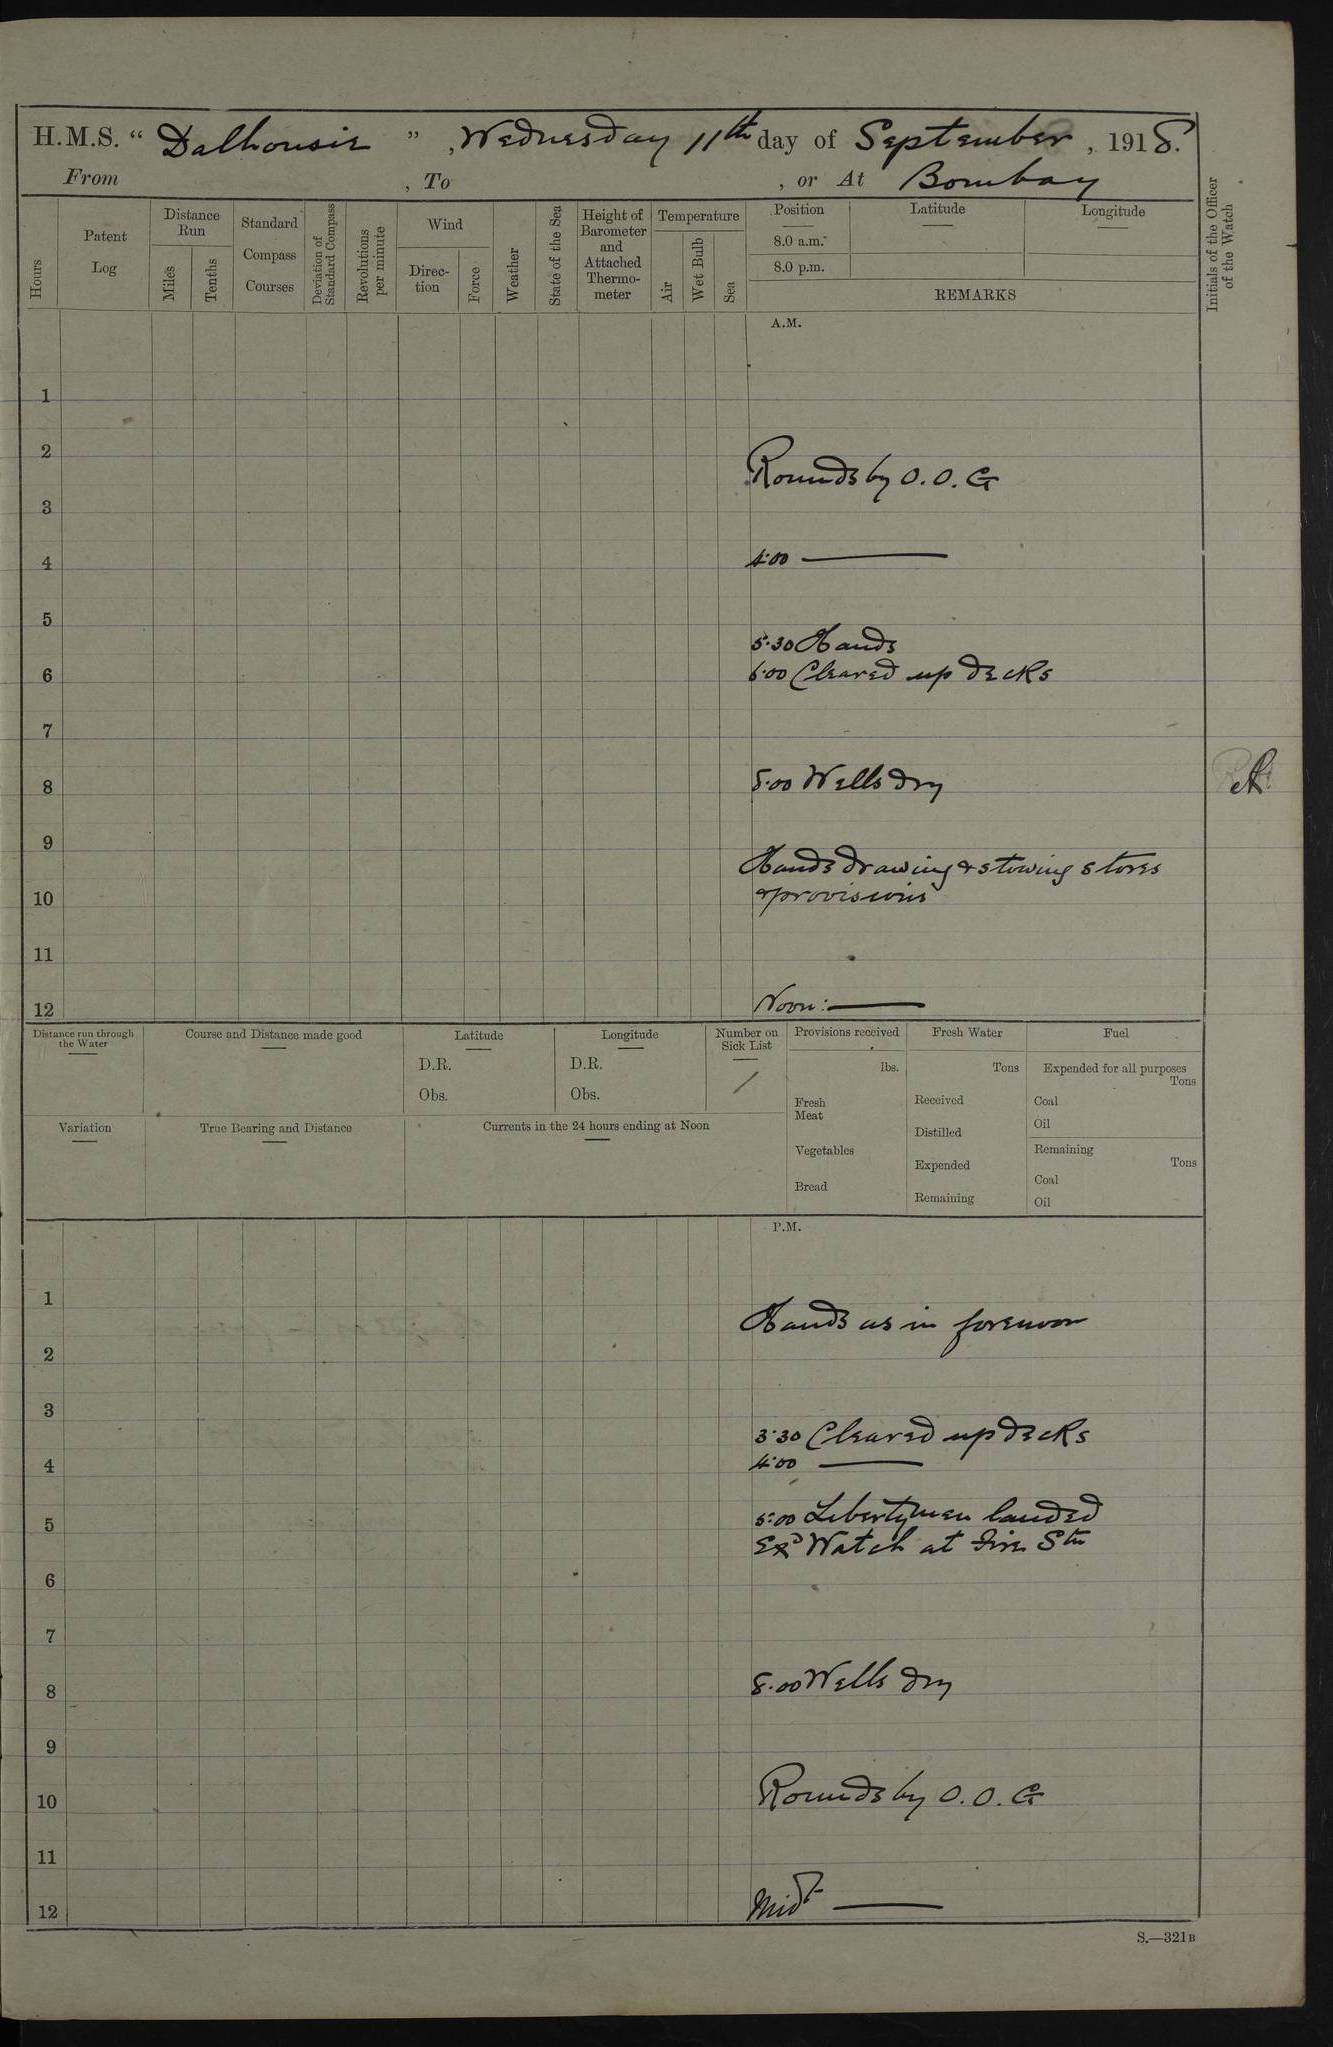 H.M.S. “ Dalhousie ” , Wednesday 11th day of September , 1918.
From , To , or At Bombay
Hours
Patent Log
Distance Run
Miles
Tenths
Standard Compass Courses
Deviation of Standard Compass
Revolutions per minute
Wind
Direc- tion
Force
Weather
State of the Sea
Height of Barometer and Attached Thermo- meter
Temperature
Air
Wet Bulb
Sea
Position
Latitude
Longitude
8.0 a.m.
8.0 p.m.
REMARKS
Initials of the Officer of the Watch
A.M.
1
2
Rounds by O.O.G
3
4
4.00
5
5.30 Hands
6
6.00 Cleared up decks
7
8
8.00 Wells dry
9
Hands drawing & stowing stores
10
& provisions
11
12
Noon:
Distance run through the Water
Course and Distance made good
Latitude
D.R.
Obs.
Longitude
D.R.
Obs.
Number on Sick List
1
Provisions received
lbs.
Fresh Meat
Vegetables
Bread
Fresh Water
Tons
Received
Distilled
Expended
Remaining
Fuel
Expended for all purposes
Tons
Coal
Oil
Remaining
Tons
Coal
Oil
Variation
True Bearing and Distance
Currents in the 24 hours ending at Noon
P.M.
1
Hands as in forenoon
2
3
3.30 Cleared up decks
4
4.00
5
5.00 Libertymen landed
Exd Watch at Fire Stn
6
7
8
8.00 Wells dry
9
10
Rounds by O.O.G
11
12
Midt
S.—321B